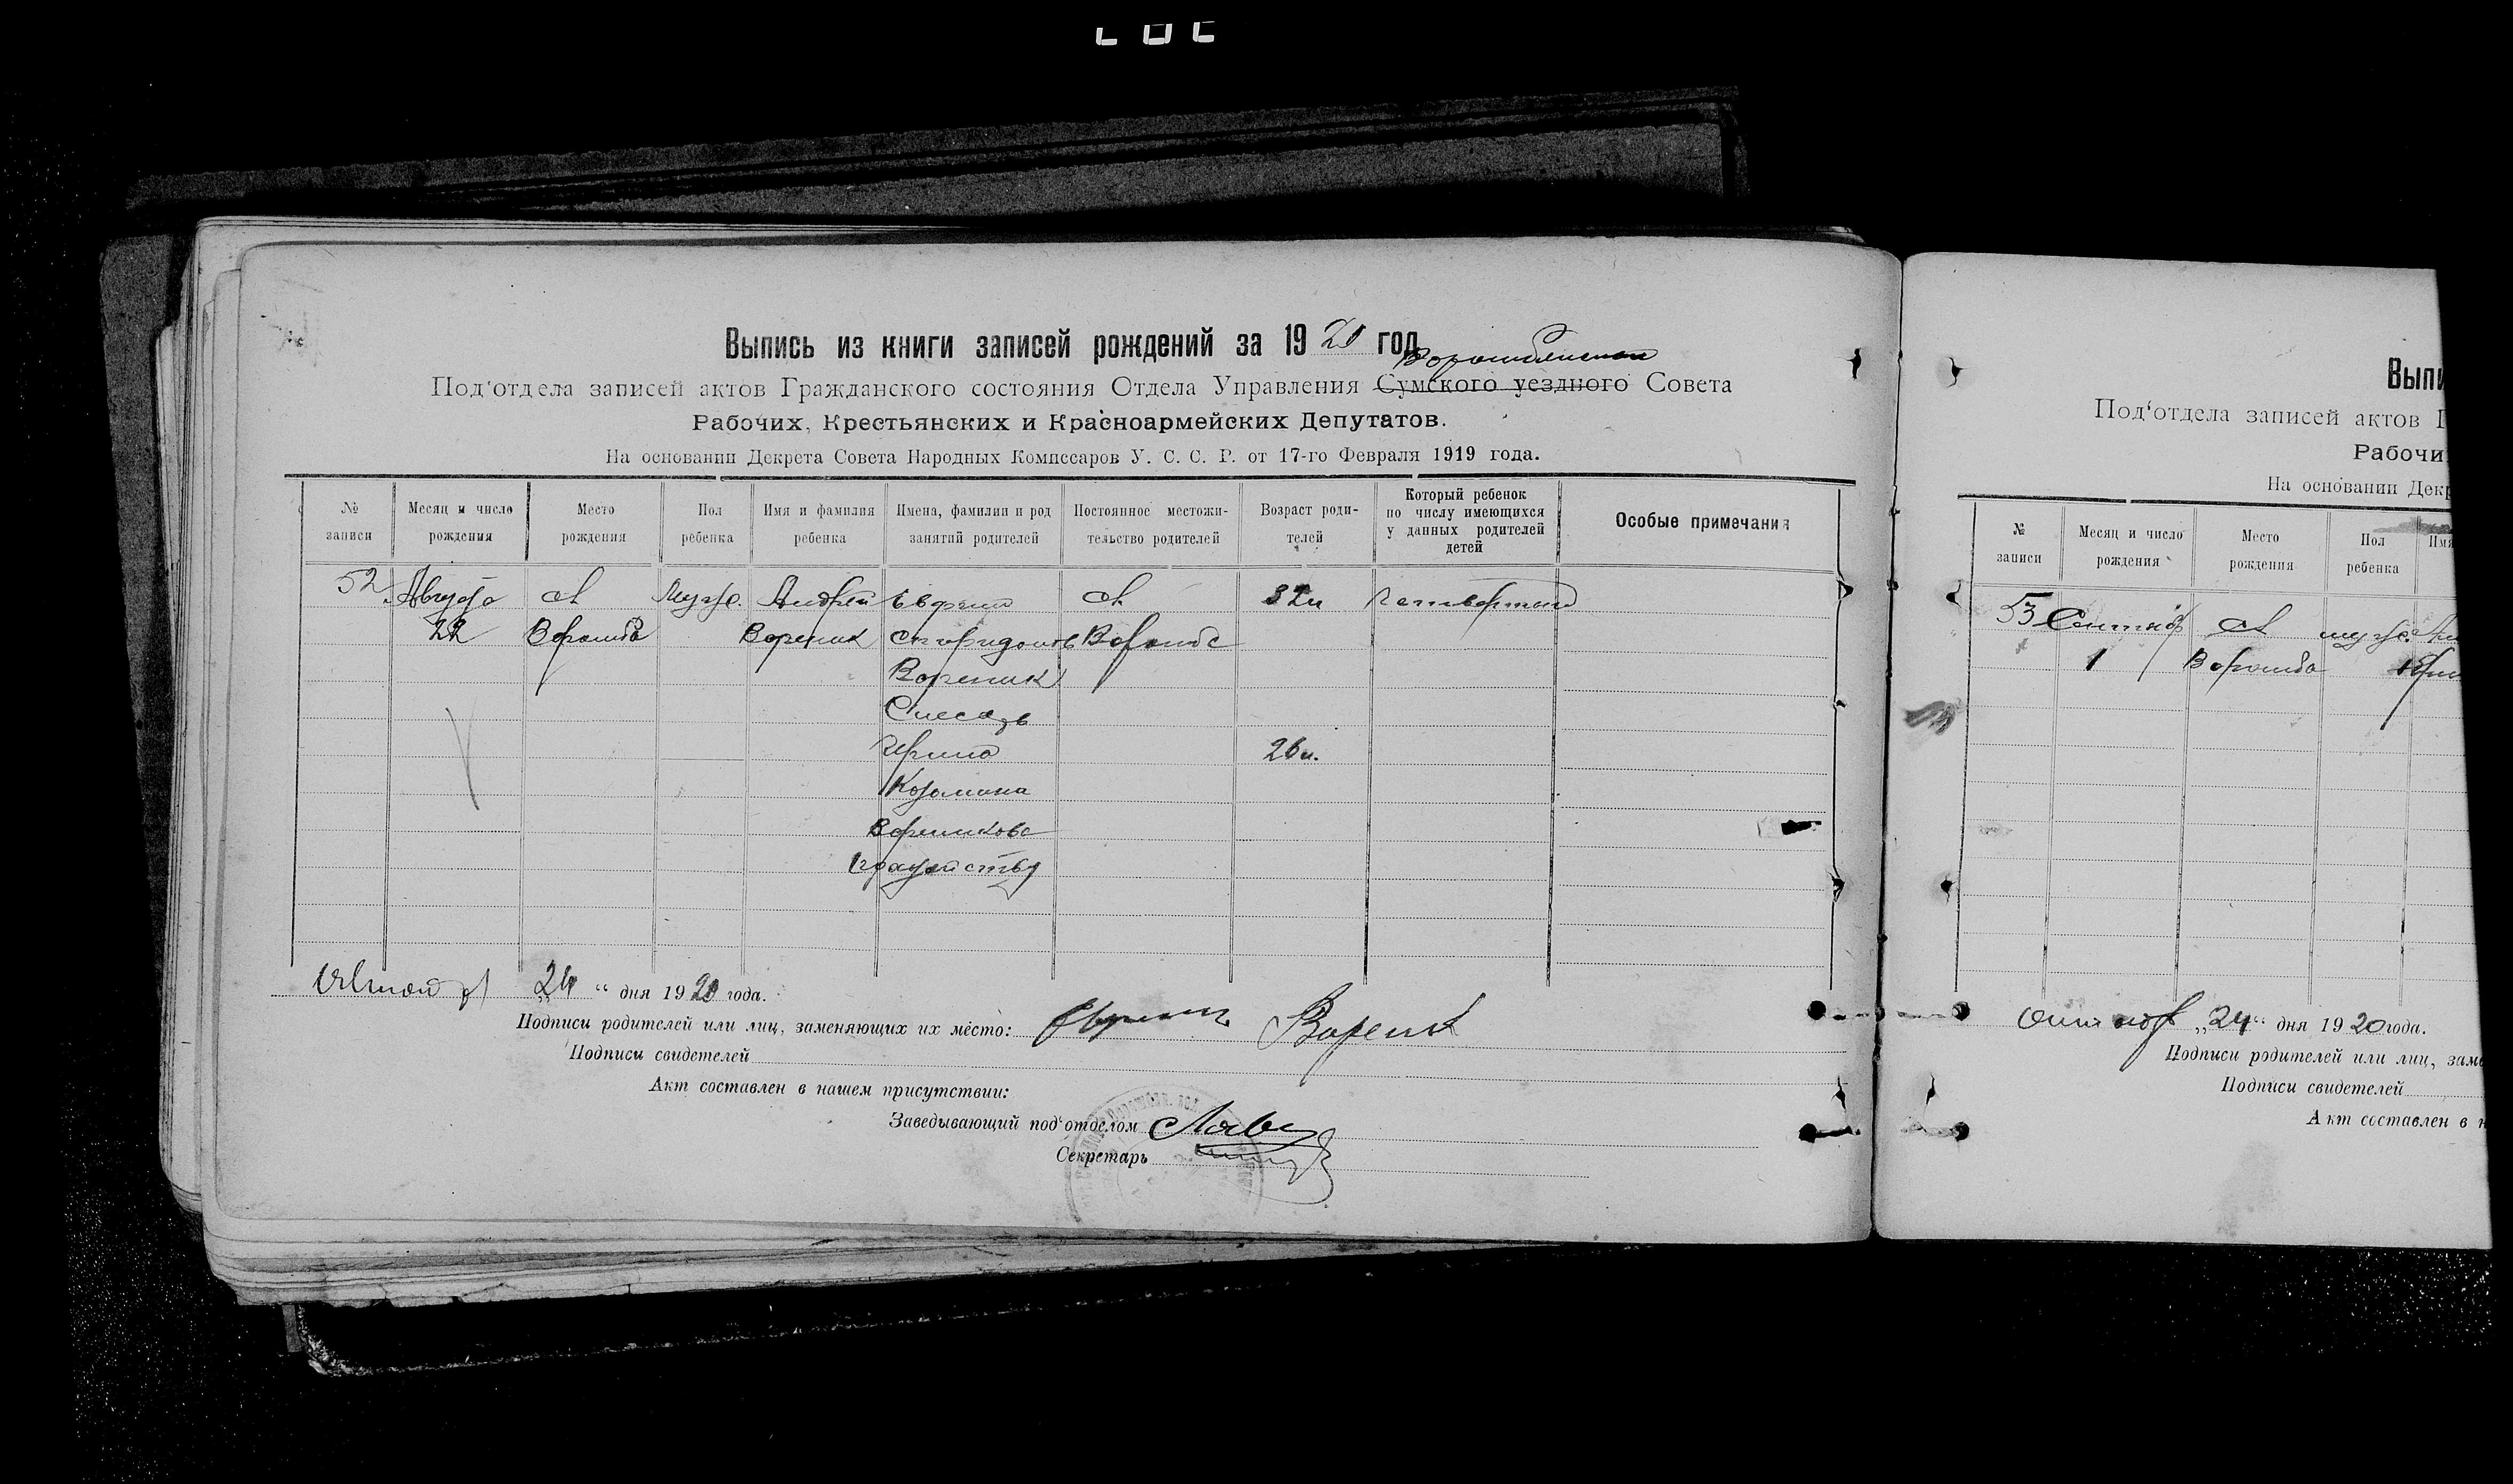 Выпись из книги записей рождений за 1920 год
Ворожбянского
Под'отдела записей актов Гражданского состояния Отдела Управления Сумского уездного Совета
Рабочих, Крестьянских и Красноармейских Депутатов.
На основании Декрета Совета Народных Комиссаров У. С. С. Р. от 17-го Февраля 1919 года.
№ записи
Месяц и число рождения
Место рождения
Пол ребенка
Имя и фамилия ребенка
Имена, фамилии и род занятий родителей
Постоянное местожительство родителей
Возраст родителей
Который ребенок по числу имеющихся у данных родителей детей
Особые примечания
52 Августа с. Мужс. Андрей Ефрем с. 32 л четвертый
22 Ворожба Вореник Спиридонов Ворожбе
Вореник
Слесарь
Ирина 26 л.
Козьмина
Вореникова
24 “ дня 1920 года.
Подписи родителей или лиц, заменяющих их место: Ефрем Вореник
Подписи свидетелей
Акт составлен в нашем присутствии:
Заведывающий под'отделом
Секретарь
Выпи
Под'отдела записей актов Г
Рабочи
На основании Декр
№ записи
Месяц и число рождения
Место рождения
Пол ребенка
Имя
53 Сентябр с. мужс.
1 Ворожба
„24“ дня 1920 года.
Подписи родителей или лиц, заме
Подписи свидетелей
Акт составлен в н